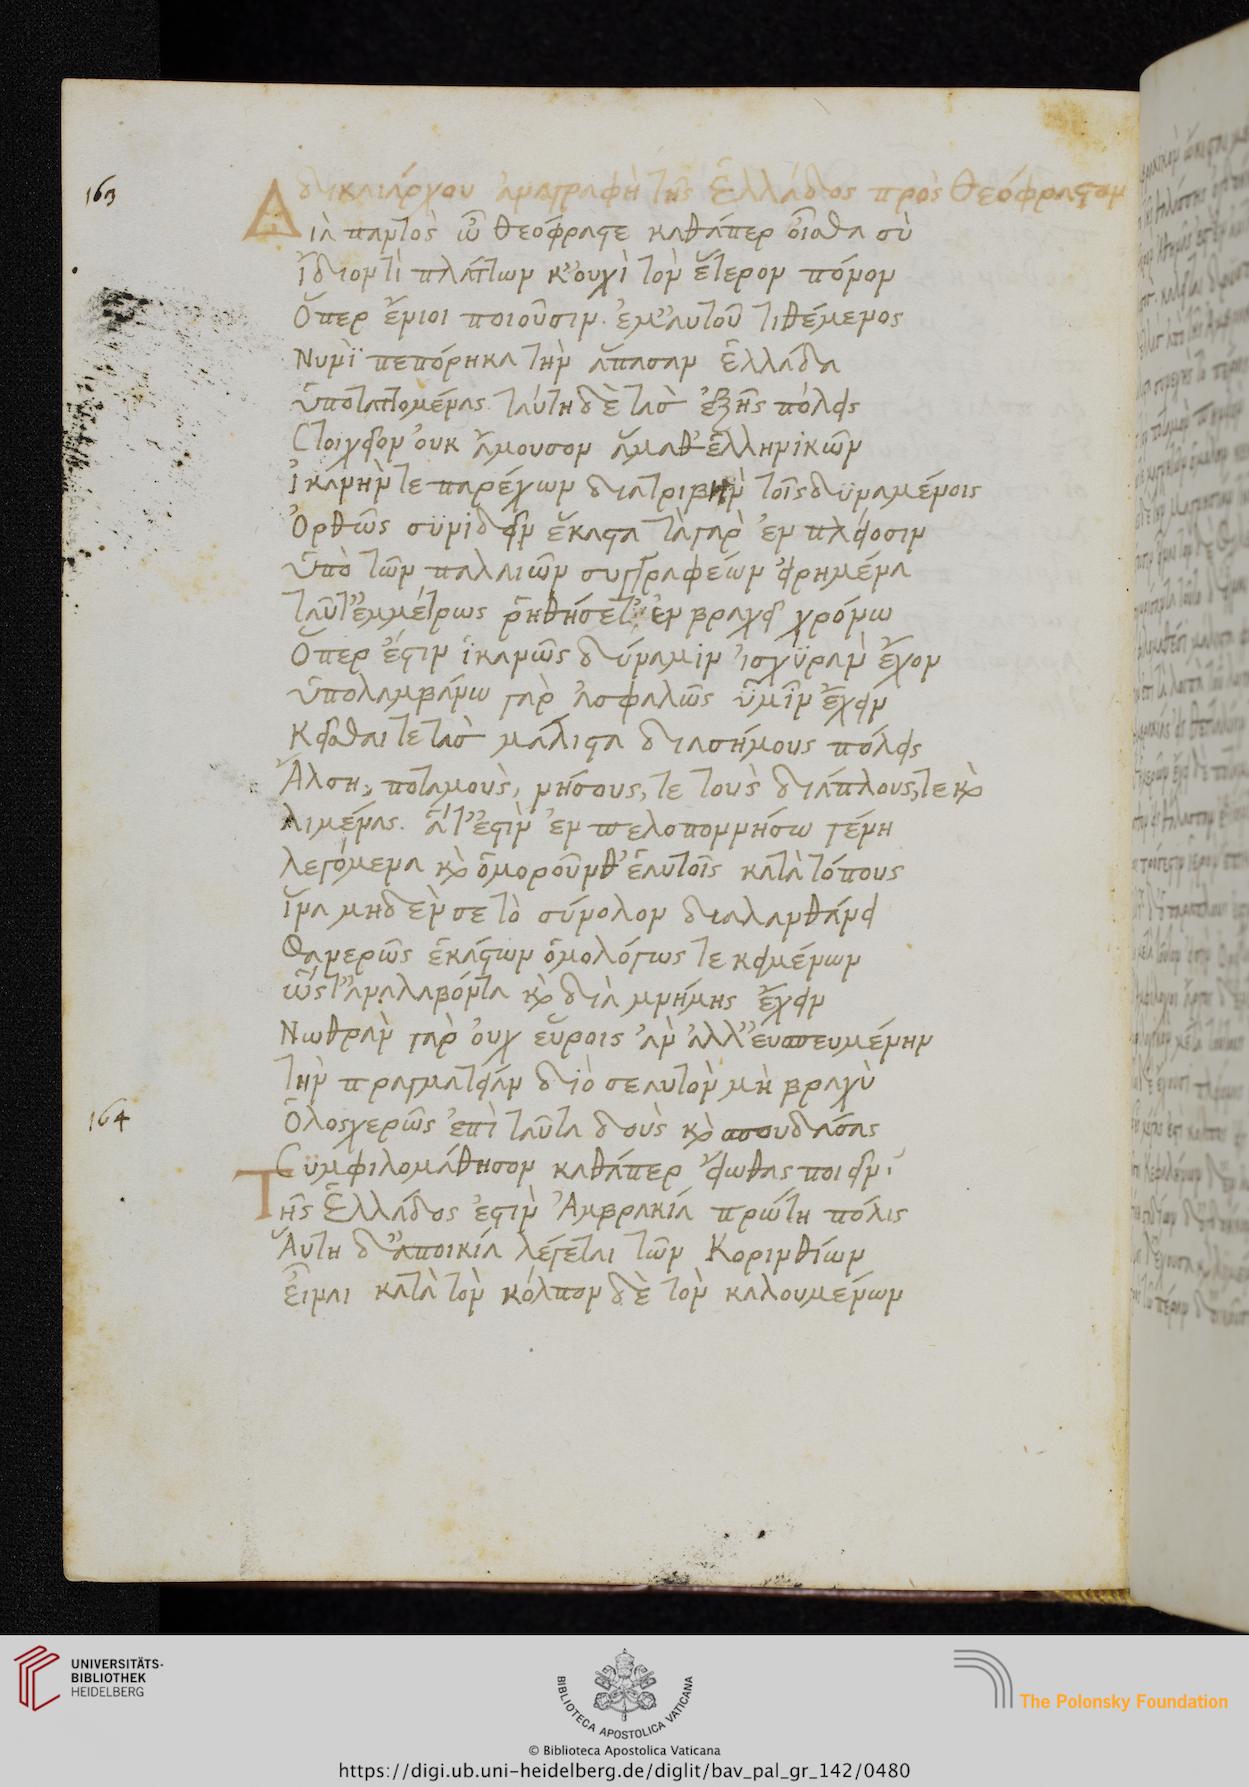 163
δικαιάρχου ἀναγραφὴ τῆς Ἑλλάδος πρὸς Θεόφραστον
Διὰ παντὸς ὦ θεόφραστε καθάπερ οἶσθα σὺ
ἴδιόν τι πλάττων κ'ουχὶ τὸν ἕτερον πόνον
Ὅπερ ἔνιοι ποιοῦσιν. ἐμ'αυτοῦ τιθέμενος
Νυνὶ πεπόρηκα τὴν ἅπασαν ἑλλάδα
ὑποταττομένας ταύτη δὲ τὰς ἑξῆς πόλεις
Στοιχεῖον ὀυκ ἄμουσον ἅμαθ' ἑλληνικῶν
Ἱκανήν τε παρέχων διατριβὴν τοῖς δυναμένοις
Ὀρθῶς συνιδεῖν ἕκαστα τὰ γὰρ ἐν πλείοσιν
ὑπὸ τῶν παλαιῶν συγγραφέων εἰρημένα
ταῦτ'ἐμμέτρως ῥηθήσετ' ἐν βραχεῖ χρόνω
Ὅπερ ἐστὶν ἱκανῶς δύναμιν ἰσχυρὰν ἔχον
ὑπολαμβάνω γὰρ ἀσφαλῶς ὑμῖν ἔχειν
Κεῖσθαί τε τὰς μάλιστα διασήμους πόλεις
Ἄλση, ποταμοὺς, νήσους, τε τοὺς διάπλους, τε κὰι
λιμένας. ἅ τ'ἐστὶν ἐν πελοποννήσω γένη
λεγόμενα κὰι ὁμοροῦνθ' ἑαυτοῖς κατὰ τόπους
ἵνα μηδέν σε τὸ σύνολον διαλανθάνει
Φανερῶς ἑκάστων ὁμολόγως τε κειμένων
ὥς τ'ἀναλαβόντα κὰι διὰ μνήμης ἔχειν
Νωθρὰν γὰρ ὀυχ εὕροις ἂν ἀλλ' ἐυσπευμένην
τὴν πραγματείαν διὸ σεαυτὸν μὴ βραχὺ
164
Ὁλοσχερῶς ἐπὶ ταῦτα δοὺς κὰι σπουδάσας
Συμφιλομάθησον καθάπερ εἴωθας ποιεῖν·
Τῆς Ἑλλάδος ἐστὶν Ἀμβρακία πρώτη πόλις
Ἅυτη δ'ἀποικία λέγεται τῶν Κορινθίων
Εἶναι κατὰ τὸν κόλπον δὲ τὸν καλουμένων
UNIVERSITÄTS-
BIBLIOTHEK
HEIDELBERG
BIBLIOTECA APOSTOLICA VATICANA
The Polonsky Foundation
© Biblioteca Apostolica Vaticana
https://digi.ub.uni-heidelberg.de/diglit/bav_pal_gr_142/0480